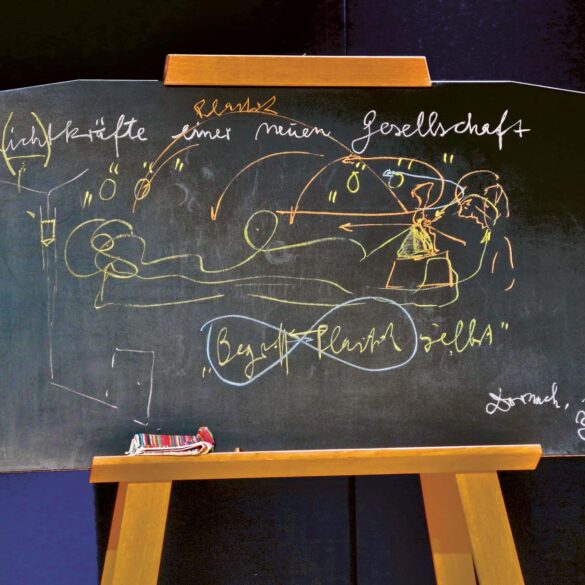 Plastik
(ich)tkräfte einer neuen Gesellschaft
"Ö" "Ö" "Ö"
"Begriff Plastik selbst"
Dornach,